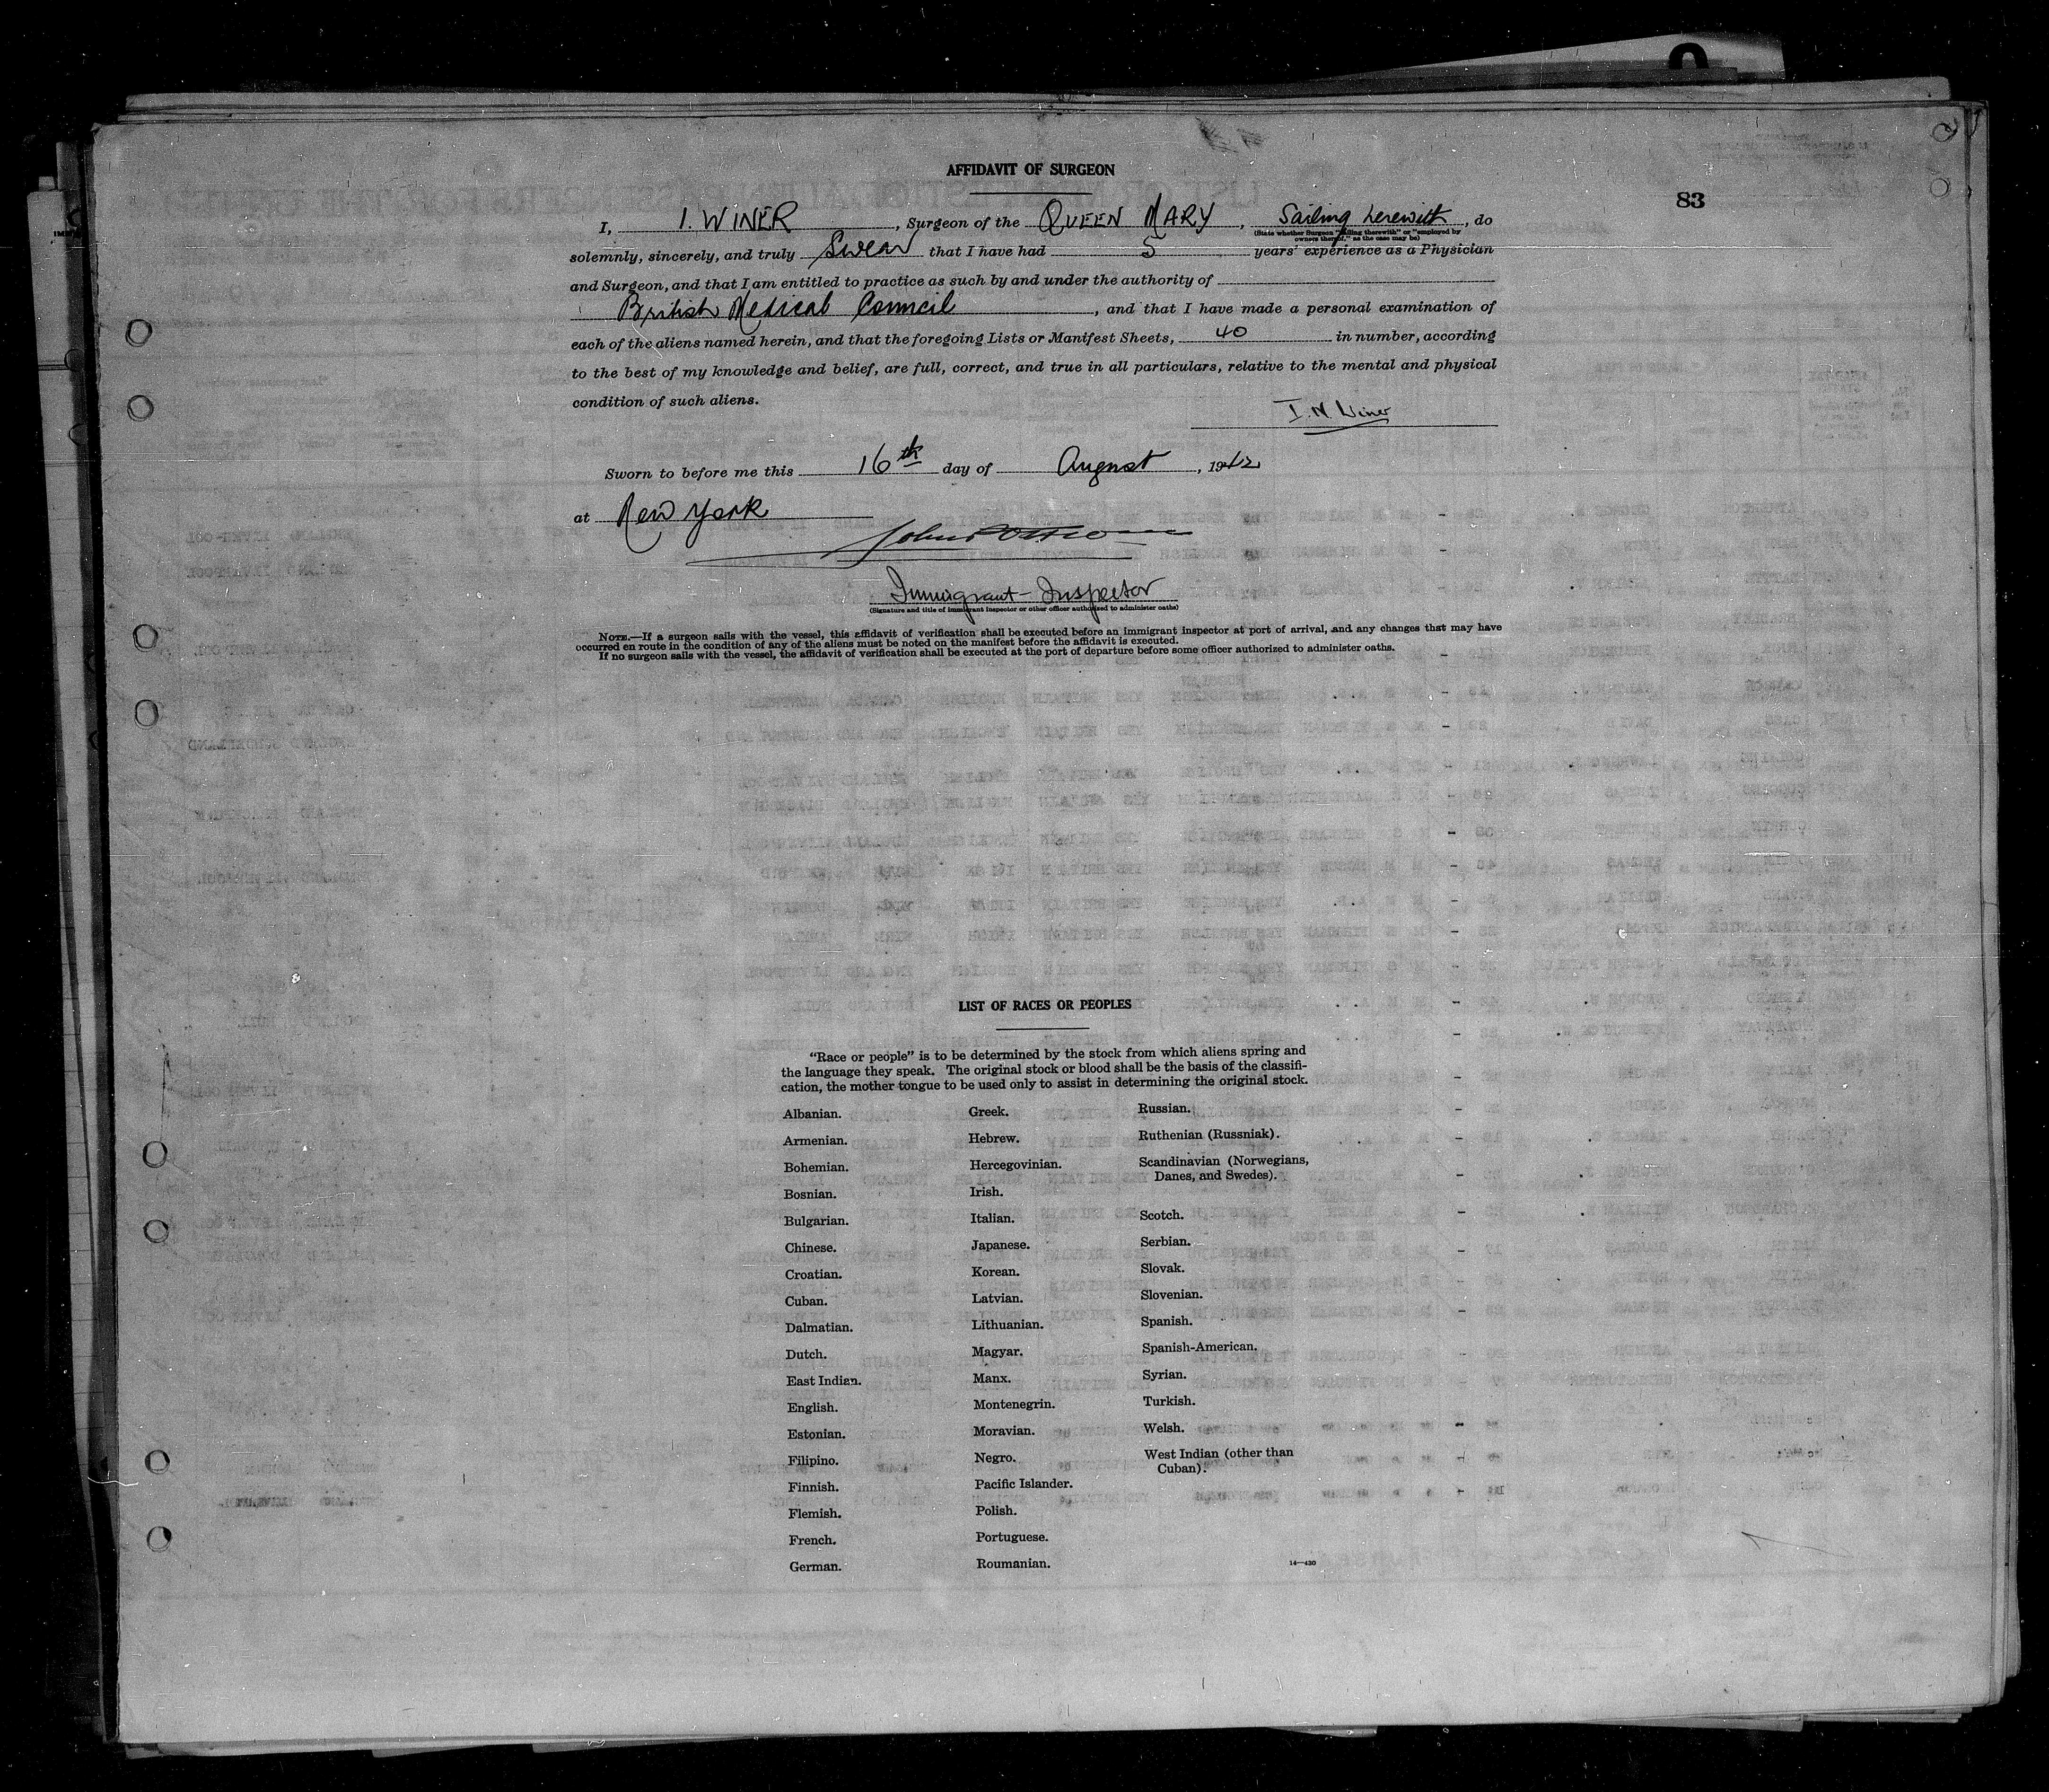 AFFIDAVIT OF SURGEON
83
I, I. WINER, Surgeon of the QUEEN MARY, Sailing herewith, do
(State whether Surgeon "sailing therewith" or "employed by
owners thereof," as the case may be)
solemnly, sincerely, and truly Swear that I have had 5 years' experience as a Physician
and Surgeon, and that I am entitled to practice as such by and under the authority of
British Medical Council, and that I have made a personal examination of
each of the aliens named herein, and that the foregoing Lists or Manifest Sheets, 40 in number, according
to the best of my knowledge and belief, are full, correct, and true in all particulars, relative to the mental and physical
condition of such aliens.
I. N. Winer
Sworn to before me this 16th day of August, 1942
at New York
Immigrant-Inspector
(Signature and title of immigrant inspector or other officer authorized to administer oaths)
NOTE.—If a surgeon sails with the vessel, this affidavit of verification shall be executed before an immigrant inspector at port of arrival, and any changes that may have
occurred en route in the condition of any of the aliens must be noted on the manifest before the affidavit is executed.
If no surgeon sails with the vessel, the affidavit of verification shall be executed at the port of departure before some officer authorized to administer oaths.
LIST OF RACES OR PEOPLES
"Race or people" is to be determined by the stock from which aliens spring and
the language they speak. The original stock or blood shall be the basis of the classifi-
cation, the mother tongue to be used only to assist in determining the original stock.
Albanian.
Armenian.
Bohemian.
Bosnian.
Bulgarian.
Chinese.
Croatian.
Cuban.
Dalmatian.
Dutch.
East Indian.
English.
Estonian.
Filipino.
Finnish.
Flemish.
French.
German.
Greek.
Hebrew.
Hercegovinian.
Irish.
Italian.
Japanese.
Korean.
Latvian.
Lithuanian.
Magyar.
Manx.
Montenegrin.
Moravian.
Negro.
Pacific Islander.
Polish.
Portuguese.
Roumanian.
Russian.
Ruthenian (Russniak).
Scandinavian (Norwegians,
Danes, and Swedes).
Scotch.
Serbian.
Slovak.
Slovenian.
Spanish.
Spanish-American.
Syrian.
Turkish.
Welsh.
West Indian (other than
Cuban).
14—430